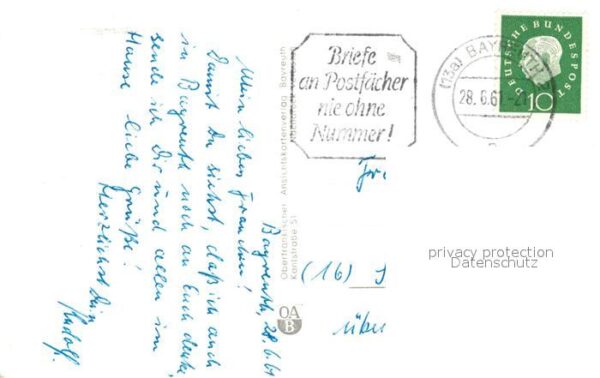 Bayreuth, 28.6.61
Mein liebes Frauchen!
Damit Du siehst, daß ich auch
in Bayreuth noch an Euch denke,
sende ich Dir und allen im
Hause liebe Grüße!
Herzlichst Dein
Rudolf.
Oberfränkischer Ansichtskartenverlag Bayreuth
Kantstraße 51
OA
B
Briefe
an Postfächer
nie ohne
Nummer!
(13a) BAYREUTH 2
28.6.61
DEUTSCHE BUNDESPOST
10
Fr.
privacy protection
Datenschutz
(16)
über